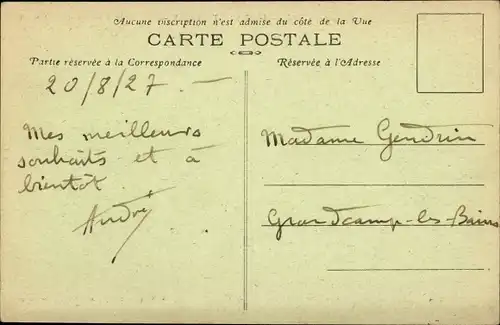 Aucune inscription n'est admise du côté de la Vue
CARTE POSTALE
Partie réservée à la Correspondance
Réservée à l'Adresse
20/8/27. —
Mes meilleurs
souhaits et à
bientôt.
André
Madame Gendrin
Grandcamp-les-Bains